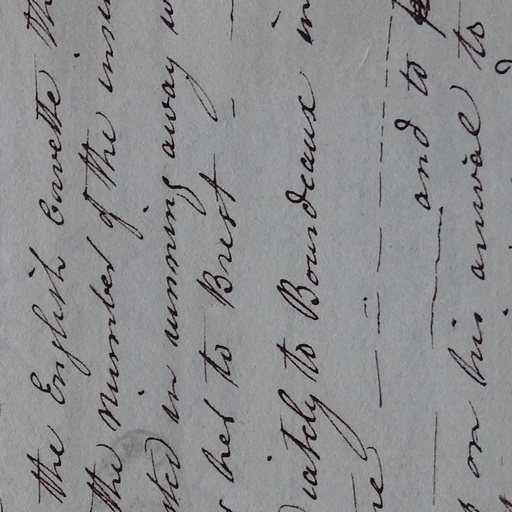 the English Cavette th
the number of the insu
ted in running away w
her to Brest — —
iately to Bourdeaux in
re — — — — —
— — and to
on his arrival to